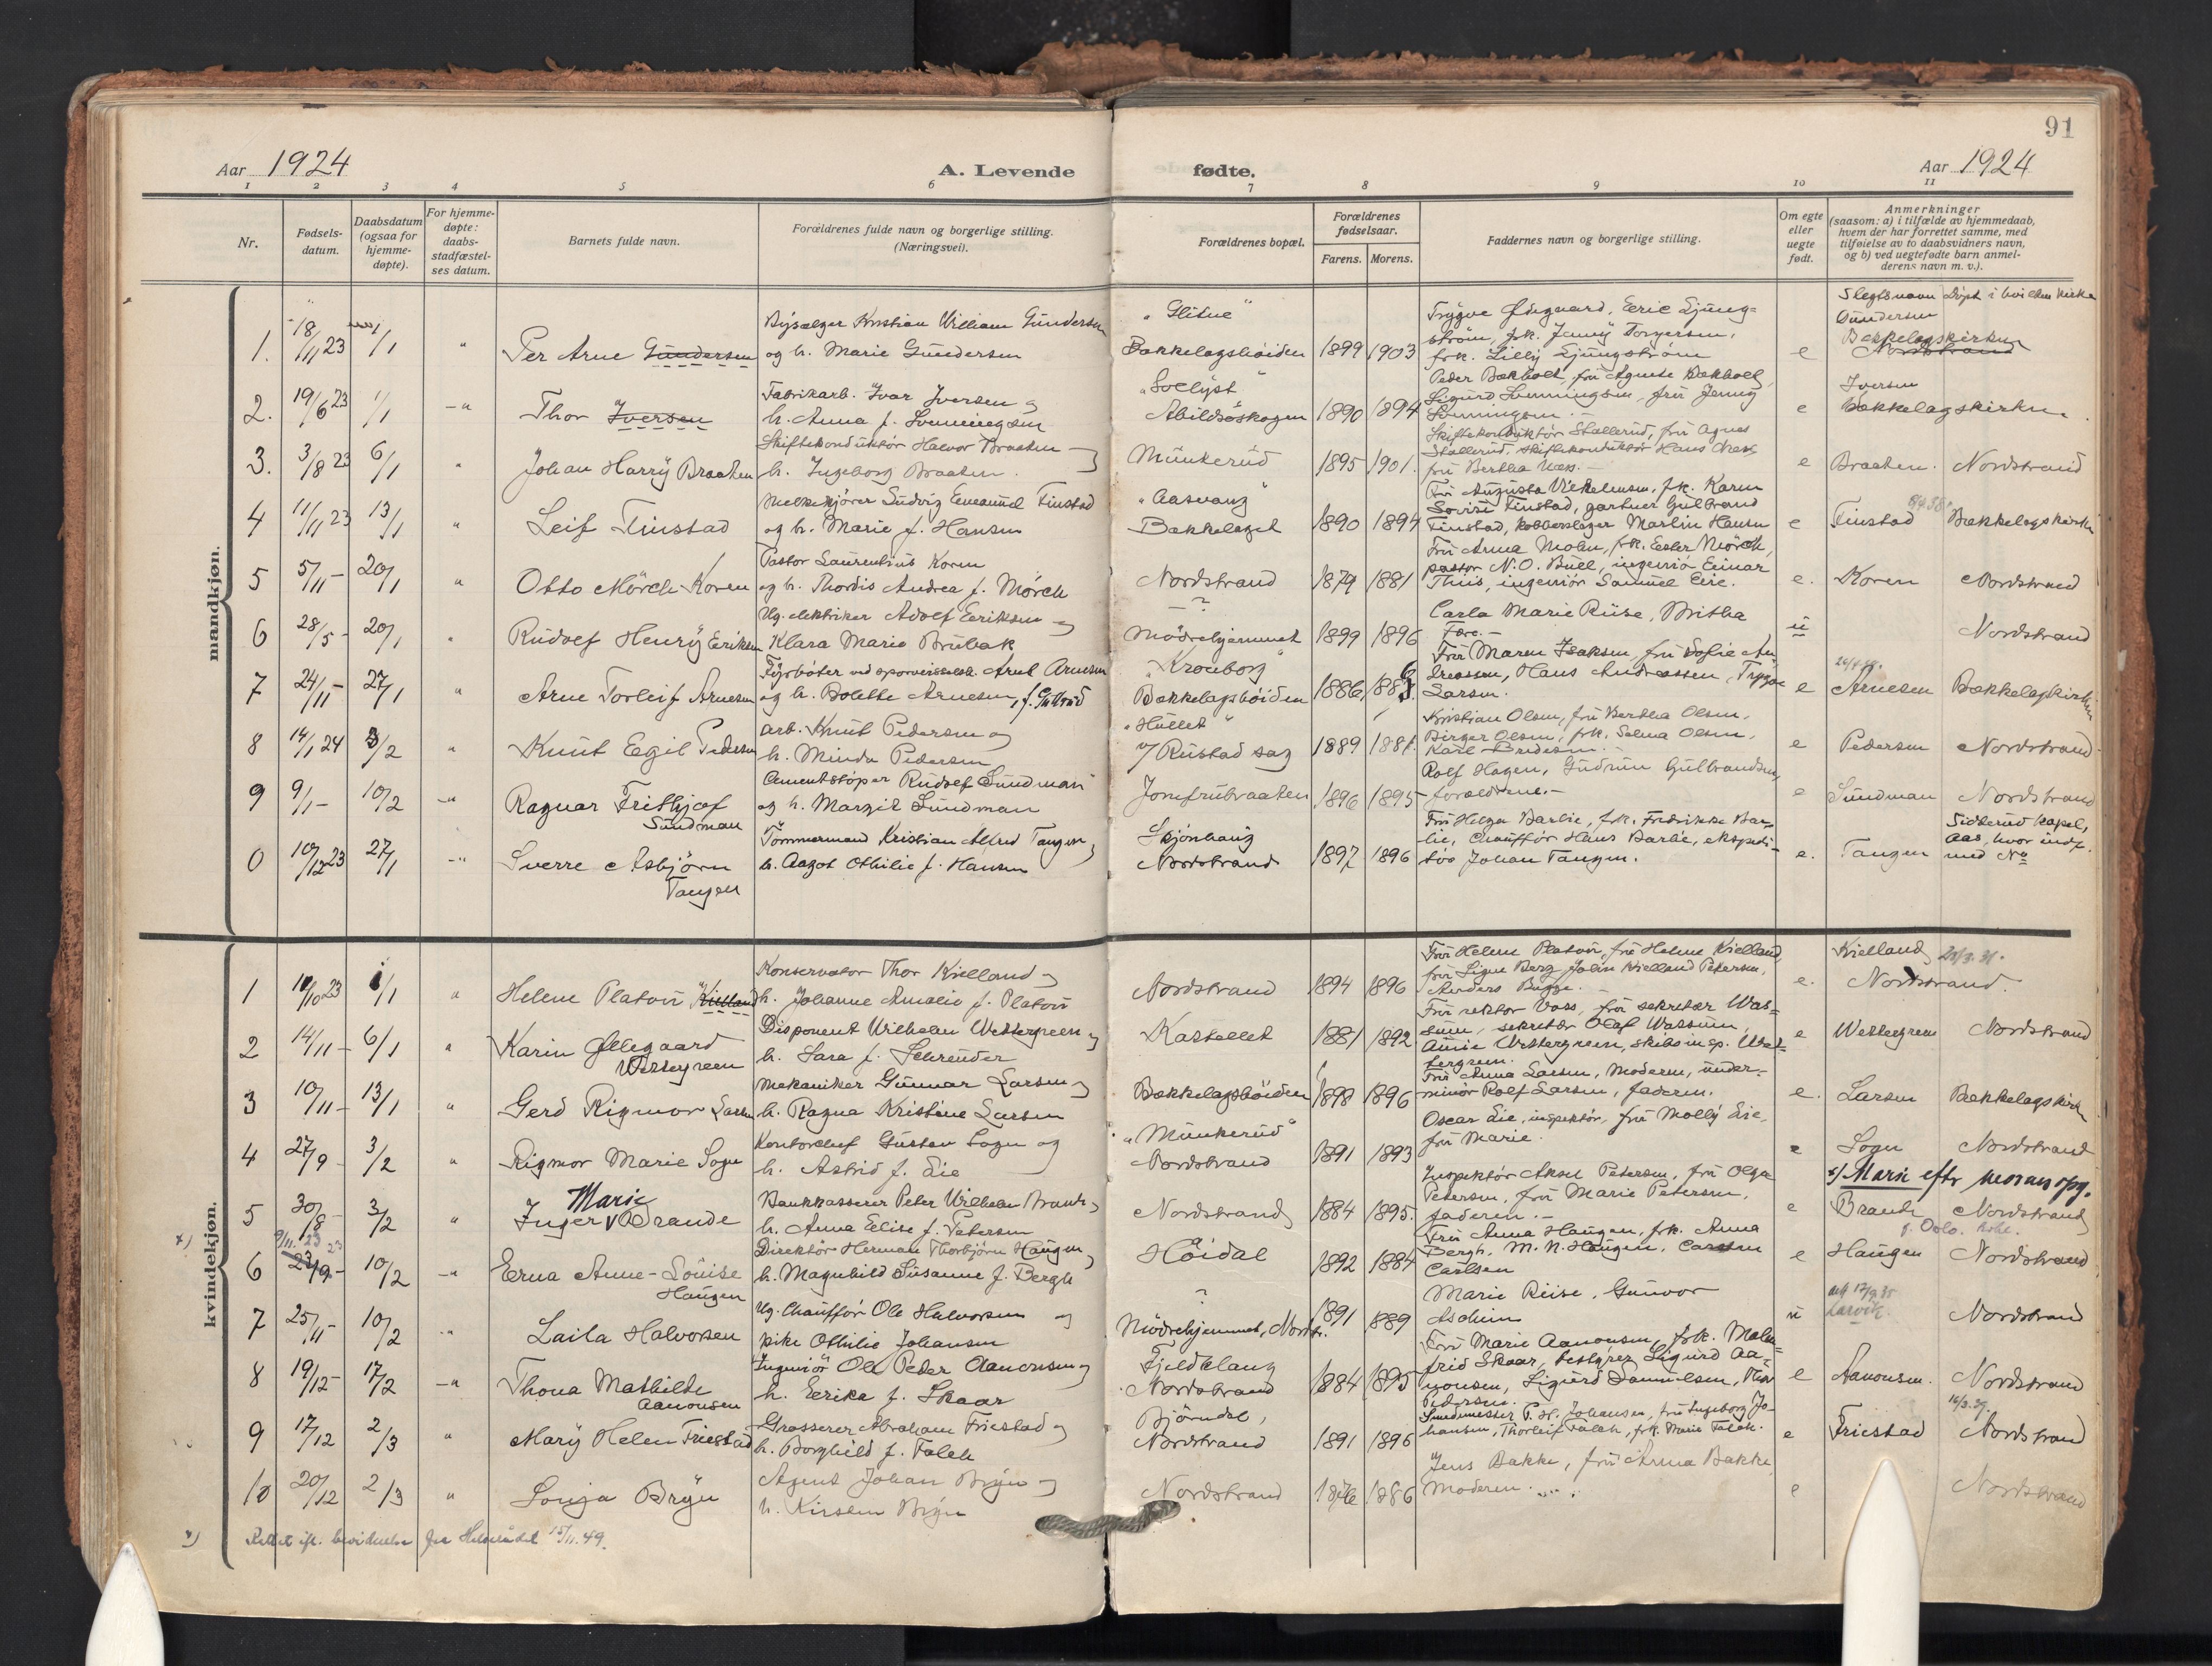 91
Aar 1924
A. Levende fødte.
Aar 1924
1 2 3 4 5 6 7 8 9 10 11
Nr.
Fødsels-
datum.
Daabsdatum
(ogsaa for
hjemme-
døpte).
For hjemme-
døpte:
daabs-
stadfæstel-
ses datum.
Barnets fulde navn.
Forældrenes fulde navn og borgerlige stilling.
(Næringsvei).
Forældrenes bopæl.
Forældrenes
fødselsaar.
Farens. Morens.
Faddernes navn og borgerlige stilling.
Om egte
eller
uegte
født.
Anmerkninger
(saasom: a) i tilfælde av hjemmedaab,
hvem der har forrettet samme, med
tilføielse av to daabsvidners navn,
og b) ved uegtefødte barn anmel-
derens navn m. v.).
mandkjøn.
Slegtsnavn Døpt i hvilken Kirke
1. 18/11 23 1/1 " Per Arne Gundersen
Kristian William Gundersen
og h. Marie Gundersen
"Glitne"
Bækkelagshøiden 1899 1903
Trygve Ødegaard, Eric Ljung-
strøm, frk. Jenny Torgersen,
frk. Lilly Ljungstrøm
e Gundersen
Bækkelagskirken
Nordstrand
2. 19/6 23 1/1 " Thor Iversen
Fabrikarb. Ivar Iversen og
h. Anna f. Svenningsen
"Solljst"
Abildsøskogen 1890 1894
Peder Bækholt, fru Agnete Bækholt,
Sigurd Svenningsen, fru Jenny
Svenningsen.
e Iversen
Bækkelagskirken.
3. 3/8 23 6/1 " Johan Harry Braaten
Skiftekonduktør Halvor Braaten
h. Ingeborg Braaten.
Munkerud 1895 1901.
Skiftekonduktør Stallerud, fru Agnes
Stallerud, skiftekonduktør Hans Næss
fru Bertha Næss.
e Braaten. Nordstrand
4 11/11 23 13/1 " Leif Finstad
Melkekjører Ludvig Emanuel Finstad
og h. Marie f. Hansen
"Aasvang"
Bækkelaget 1890 1894
Fru Augusta Vilhelmsen, frk. Karen
Lovise Finstad, gartner Gulbrand
Finstad, kobberslager Martin Hansen
e Finstad Bækkelagskirken
5 5/11 - 20/1 " Otto Mörch Koren
Pastor Laurentius Koren
og h. Thordis Andrea f. Mörch
Nordstrand 1879 1881
Fru Anna Mohn, frk. Ester Mörch,
pastor N. O. Bull, ingeniør Einar
Thiis, ingeniør Samuel Eie.
e. Koren Nordstrand
6 28/5 - 20/1 " Rudolf Henry Eriksen
Ug. elektriker Adolf Eriksen og
Klara Marie Brubak
?
Mödrehjemmet 1899 1896
Carla Marie Riise, Britha
u Nordstrand
7 24/11 - 27/1 " Arne Torleif Arnesen
Fyrbøter ved Arnt Arnesen
og h. Bolette Arnesen, f. Gulbrud
"Kronborg"
Bækkelagshøiden 1886
Fru Maren Isaksen, fru Sofie An-
dreassen, Hans Andreassen, Trygve
Larsen.
e Arnesen Bækkelagskirken
8 14/1 24 3/2 " Knut Egil Pedersen
arb. Knut Pedersen og
h. Minda Pedersen
"Hullet"
v/ Rustad sag 1889 1881.
Kristian Olsen, fru Bertha Olsen,
Birger Olsen, frk. Selma Olsen,
e Pedersen Nordstrand
9 9/1 - 10/2 " Ragnar Frithjof
Sundman
Cementstøper Rudolf Sundman
og h. Margit Sundman
Jomfrubraaten 1896 1895
Rolf Hagen, Gudrun Gulbrandsen,
forældrene.
e Sundman Nordstrand
0 10/12 23 27/1 " Sverre Asbjörn
Tangen
Tömmermand Kristian Alfred Tangen,
h. Aagot Othilie f. Hansen
Skjönhaug
Nordstrand 1897 1896
Fru Helga Barlie, frk. Fredrikke Bar-
lie, Chauffør Hans Barlie, ekspedi-
tør Johan Tangen.
e. Tangen
Siddrud kapel,
Aas, hvor indf.
med No
kvindekjøn.
1 11/10 23 1/1 " Helene Platou Kielland
Konservator Thor Kielland
h. Johanne Amalie f. Platou
Nordstrand 1894 1896
Fru Helene Platou, fru Helene Kielland,
fru Signe Berg, John Kielland Petersen,
Anders Bugge.
e. Kielland
Nordstrand.
2 14/11 - 6/1 " Karin Øllegaard
Westergreen
Disponent Wilhelm Westergreen
h. Sara f. Schrøder
Kastellet 1881 1892
Fru rektor Voss, fru sekretær Was-
sum, sekretær Olaf Wassum,
Aimée Westergreen, skibsinsp. West-
ergreen.
e Westergreen Nordstrand
3 10/11 - 13/1 " Gerd Rigmor Larsen
Mekaniker Gunnar Larsen
h. Ragna Kristine Larsen
Bækkelagshøiden 1898 1896
Fru Anna Larsen, Moderen, under-
minör Rolf Larsen, faderen.
e. Larsen Bækkelagskirk
4 27/9 - 3/2 " Rigmor Marie Sogn
Kontorchef Gustav Sogn og
h. Astrid f. Lie
"Munkerud"
Nordstrand 1891 1893
Oscar Lie, inspektør, fru Molly Lie,
fru Marie.
e Sogn Nordstrand
x) Marie eftr morens opg.
5 30/8 - 3/2 " Inger v Brande
Marie
Bankkasserer Peter Wilhelm Brande
h. Anna Elise f. Petersen
Nordstrand 1884 1895.
Inspektør Aksel Petersen, fru Olga
Petersen, fru Marie Petersen,
faderen.
e Brande Nordstrand
x) 9/11. 23
6 23/9 - 10/2 " Erna Anne-Louise
Haugen
Direktør Herman Thorbjörn Haugen
h. Magnhild Susanne f. Bergh
Höidal 1892 1884
Fru Anna Haugen, frk. Anna
Bergh, M. N. Haugen,
Carlsen
e Haugen Nordstrand
7 25/11 - 10/2 " Laila Halvorsen
Ug. Chauffør Ole Halvorsen og
pike Othilie Johansen
?
Mödrehjemmet, Nordstr. 1891 1889
Marie Riise, Gunvor
Askim
u Larvik. Nordstrand
8 19/12 - 17/2 " Thona Mathilde
Aanonsen
Ingeniör Ole Peder Aanonsen og
h. Erika f. Skaar
Fjeldklang
Nordstrand 1884 1895
Fru Marie Aanonsen, frk. Malm-
frid Skaar, bestyrer Sigurd Aa-
nonsen, Sigurd Samuelsen, Thor
Pedersen.
e Aanonsen. Nordstrand
9 17/12 2/3 " Mary Helen Friestad
Grosserer Abraham Friestad og
h. Borghild f. Falch
Björndal,
Nordstrand 1891 1896
P. H. Johansen, fru Ingeborg Jo-
hansen, Thorleif Falch, frk. Marie Falch.
e Friestad Nordstrand
10 20/12 2/3 " Sonja Bryn
Agent Johan Bryn og
h. Kirsten Bryn
Nordstrand 1886
Jens Bakke, fru Anna Bakke,
Moderen.
e Nordstrand
x) Rettet ifl. bevidnelse fra Helserådet 15/11. 49.